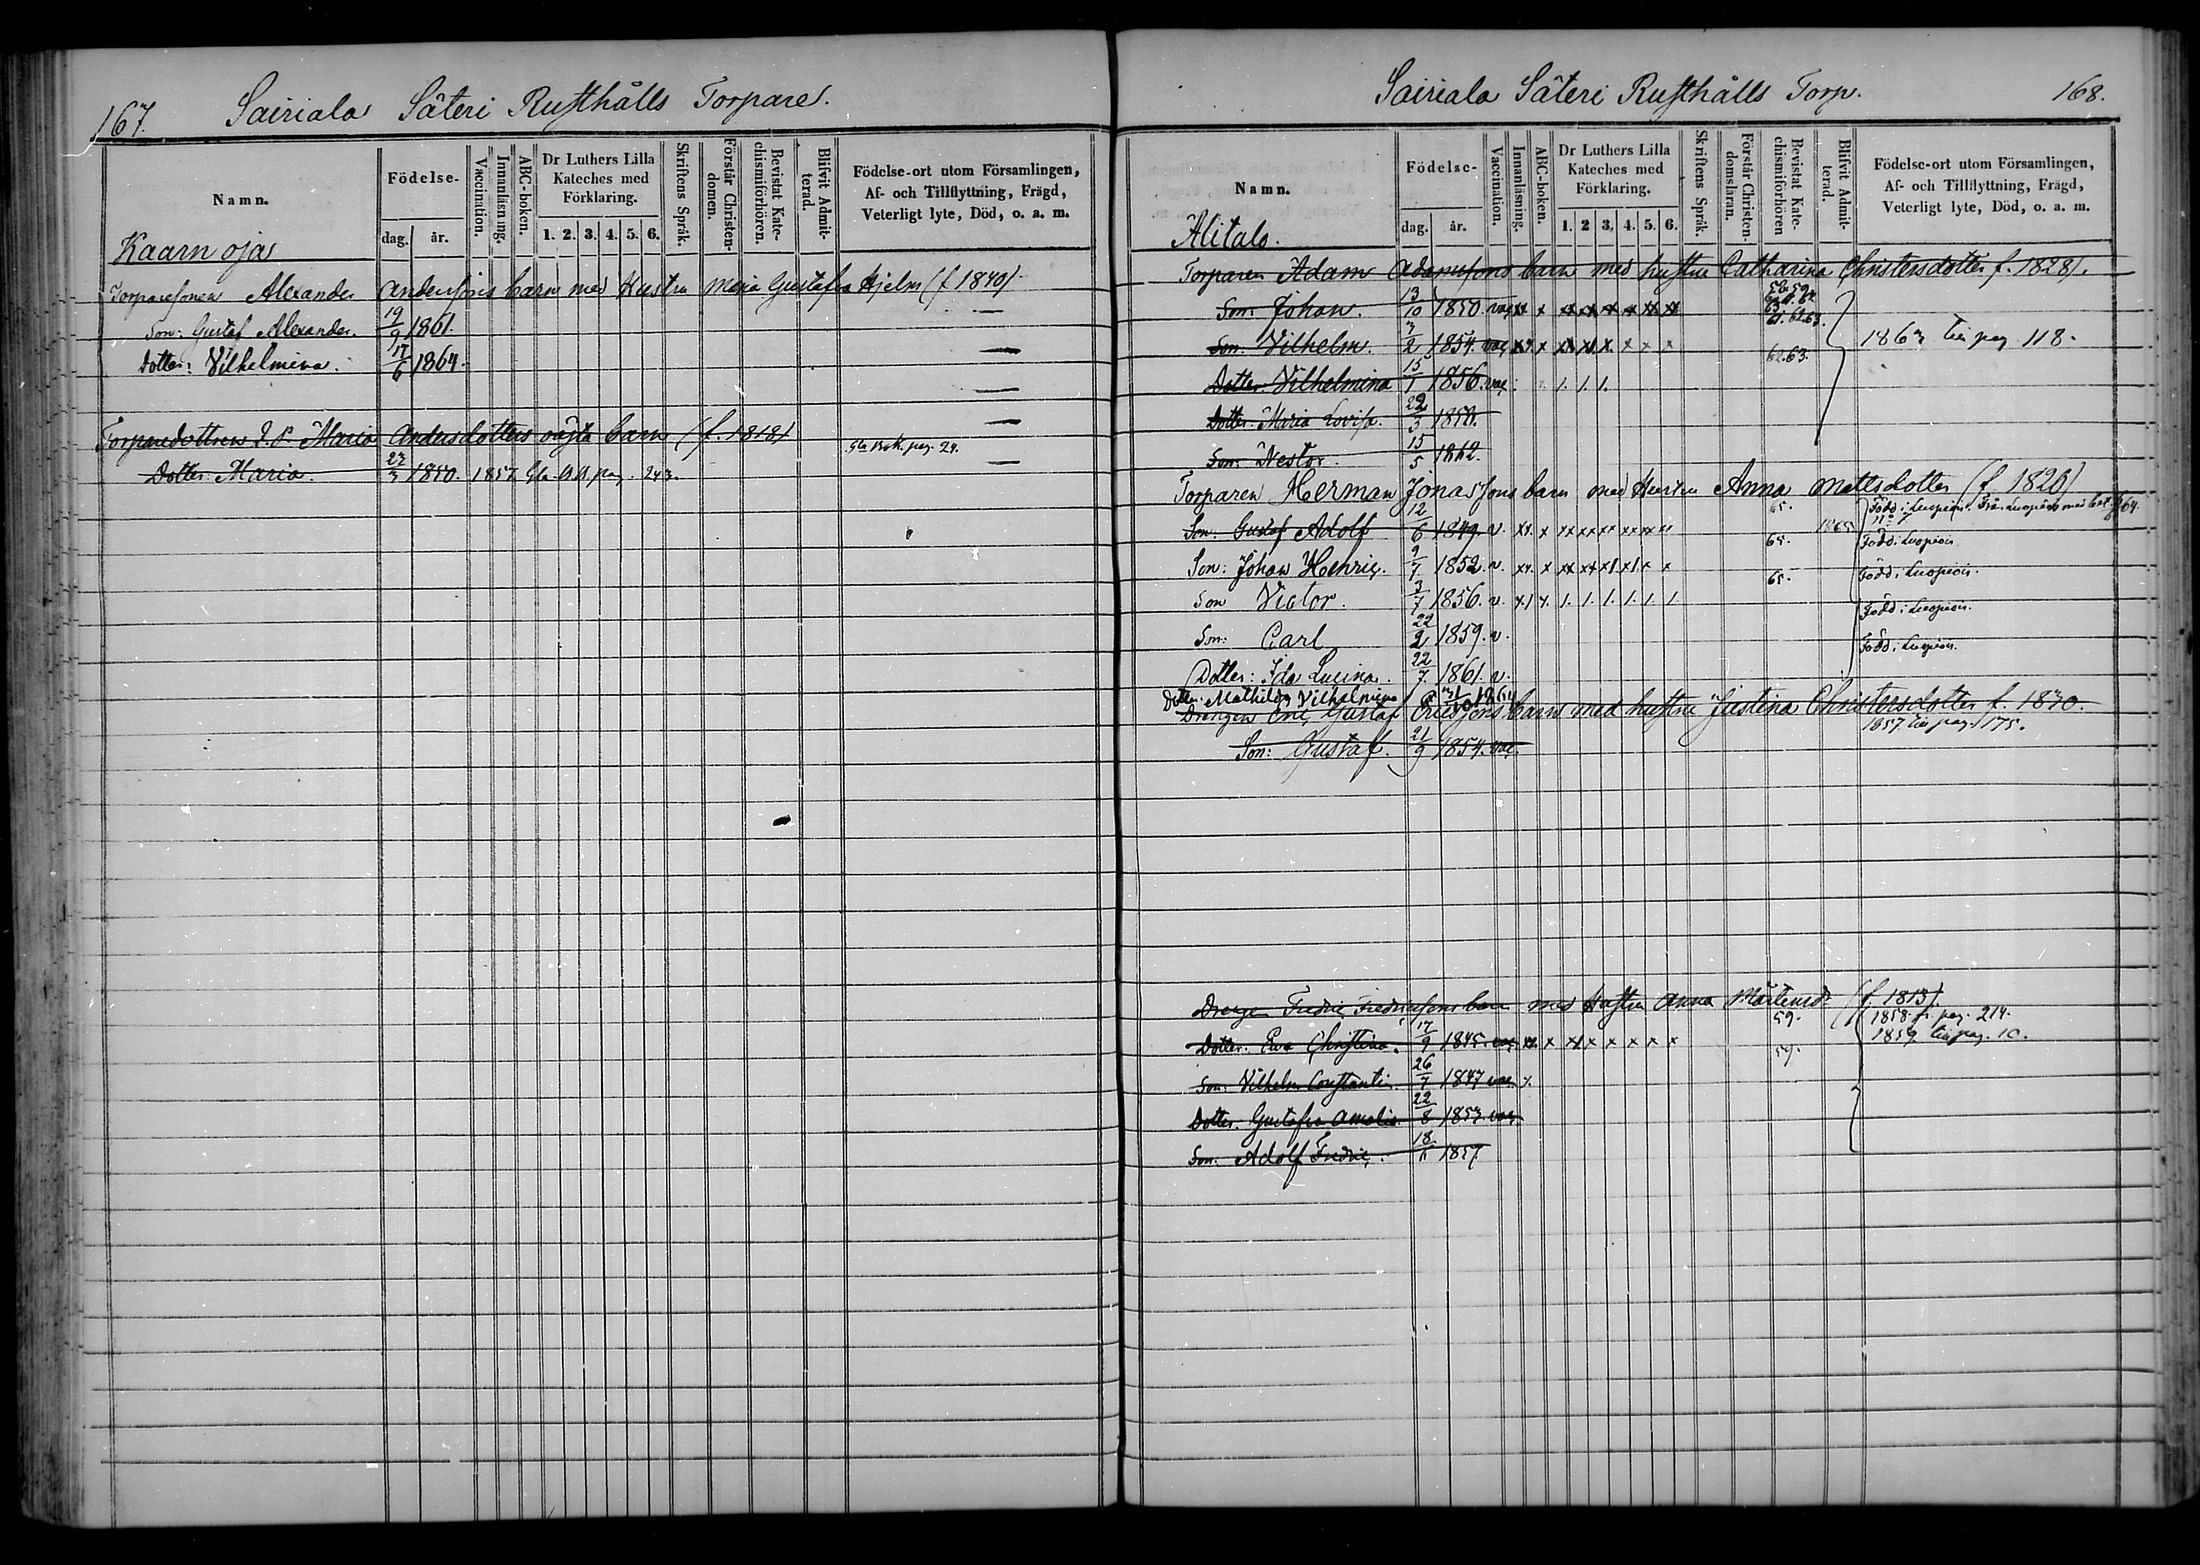 167.
Sairiala Säteri Rusthålls Torpare.
Namn.
Födelse-
dag.
år.
Vaccination.
Innanläsning.
ABC-boken.
Dr Luthers Lilla
Kateches med
Förklaring.
1. 2. 3. 4. 5. 6.
Skriftens Språk.
Förstår Christen-
domen.
Bevistat Kate-
chismiförhören.
Blifvit Admit-
terad.
Födelse-ort utom Församlingen,
Af- och Tillflyttning, Frägd,
Veterligt lyte, Död, o. a. m.
Kaarnoja
Torparesonen Alexander Andersons barn med Hustru Maria Gustafva Hjelm (f 1840)
Son: Gustaf Alexander. 19/9 1861.
Dotter: Vilhelmina. 17/6 1864.
Torparedottren Maria Andersdotters oägta barn (f. 1818)
Dotter: Maria. 23/3 1850. 1857 pag. 243.
pag. 29.
Sairiala Säteri Rusthålls Torp.
168.
Namn.
Födelse-
dag.
år.
Vaccination.
Innanläsning.
ABC-boken.
Dr Luthers Lilla
Kateches med
Förklaring.
1. 2 3. 4. 5. 6.
Skriftens Språk.
Förstår Christen-
domslaran.
Bevistat Kate-
chismiförhören
Blifvit Admit-
terad.
Födelse-ort utom Församlingen,
Af- och Tillflyttning, Frägd,
Veterligt lyte, Död, o. a. m.
Alitalo.
Torparen Adam Adamssons barn med hustru Catharina Christersdotter f. 1828).
Son: Johan. 13/10 1850. vac xx x xx xx xx xx xx xx
61. 62. 63.
Son: Vilhelm. 7/2 1854. vac x x x x x 62. 63.
1863 till pag 118.
Dotter: Vilhelmina 15/1 1856. vac 1. 1. 1.
Dotter: Maria Lovisa. 22/3 1858.
Son: Nestor. 15/5 1862.
Torparen Herman Jonassons barn med Hustru Anna Mattsdotter (f. 1826)
Son: Gustaf Adolf 12/6 1849. v. xx x xx xx xx xx xx xx 65. 1865
Född i Luopiois.
Son: Johan Henric. 9/1 1852. v. xx x xx xx x1 x1 x x 65.
Född i Luopiois.
Son Victor. 3/7 1856. v. x1 x. 1. 1. 1. 1. 1. 1 65.
Född i Luopiois.
Son: Carl 22/2 1859. v.
Född i Luopiois.
Dotter: Ida Lucina. 22/7 1861. v.
Född i Luopiois.
Dotter: Mathilda Vilhelmina 31/10 1864
Drengen Eric Gustaf Ericssons barn med hustru Justina Christersdotter f. 1830.
1857 till pag. 175.
Son: Gustaf. 21/9 1854. vac.
Drengen Fredric Fredricssons barn med Hustru Anna Mårtensd. (f. 1813).
1858 fr. pag. 214.
Dotter: Eva Christina. 17/9 1845. vac xx x x1 x x x x x 59.
1859 till pag. 10.
Son: Vilhelm Constantin. 26/7 1847 vac x. 59.
Dotter: Gustafva Amalia 22/8 1853. vac
Son: Adolf Fredric. 18/11 1857